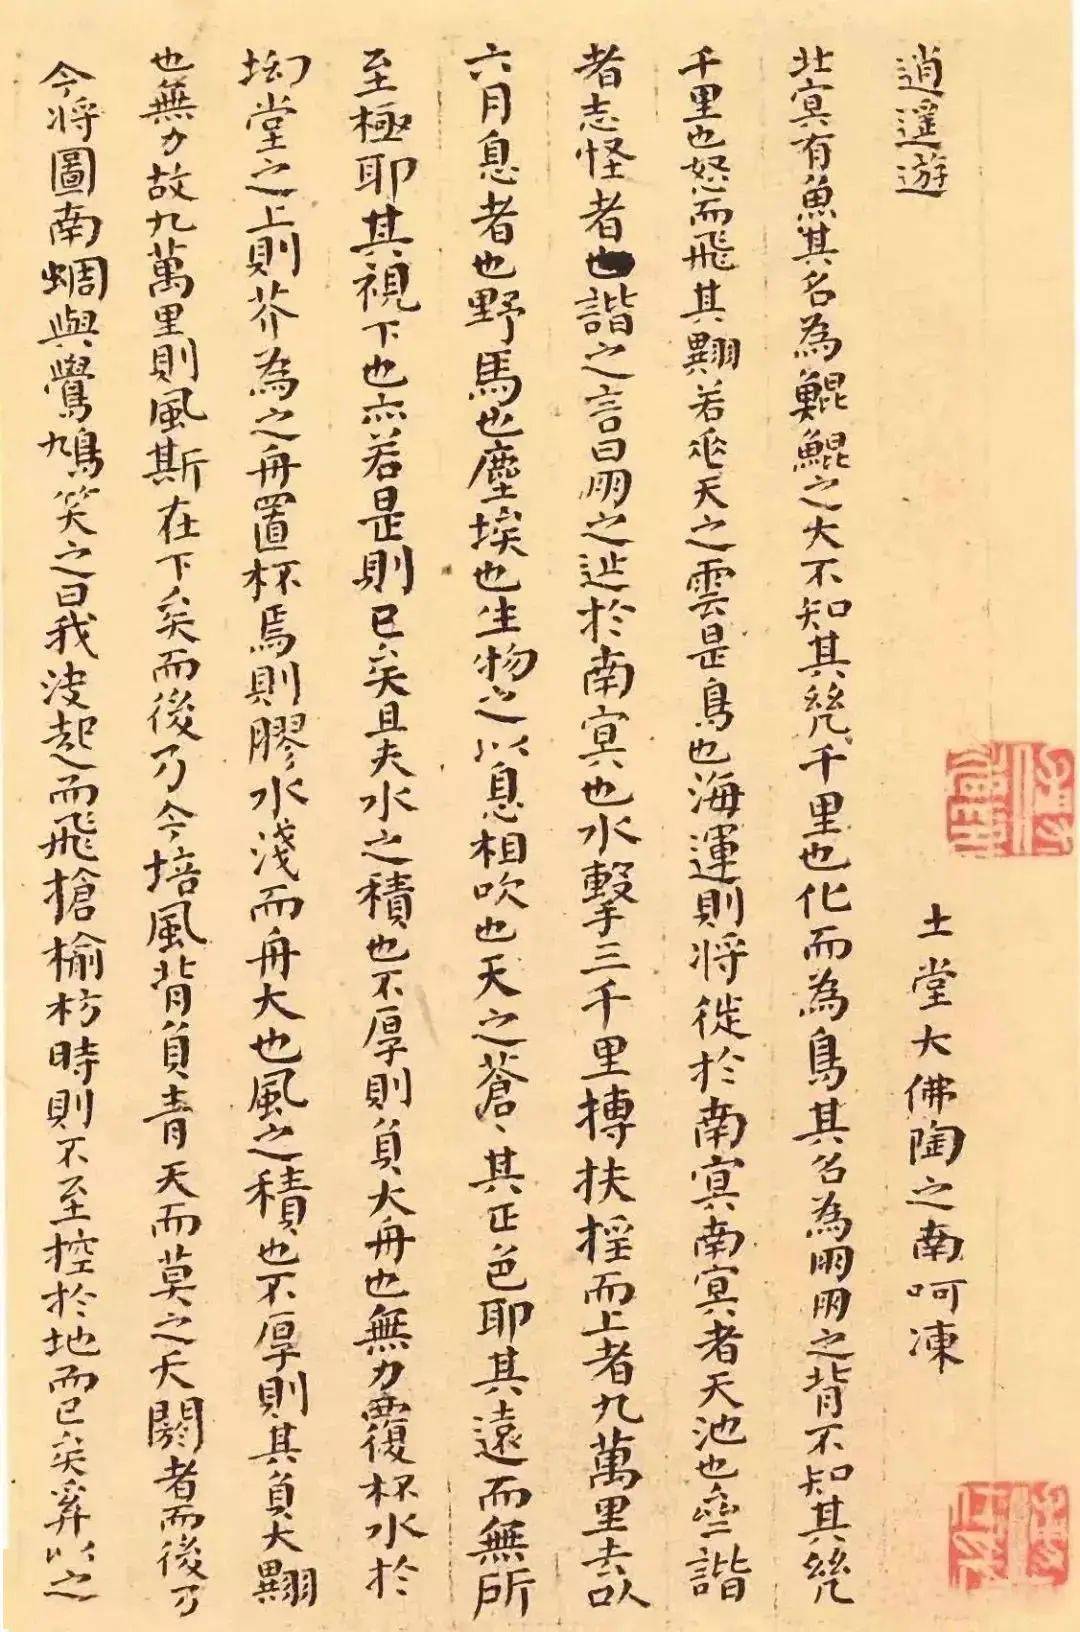 逍遙遊
土堂大佛陶之南呵凍
北冥有魚其名為鯤鯤之大不知其幾千里也化而為鳥其名為朋朋之背不知其幾
千里也怒而飛其翼若垂天之雲是鳥也海運則將徙於南冥南冥者天池也齊諧
者志怪者也諧之言曰朋之徙於南冥也水擊三千里摶扶搖而上者九萬里去以
六月息者也野馬也塵埃也生物之以息相吹也天之蒼〻其正色耶其遠而無所
至極耶其視下也亦若是則已矣且夫水之積也不厚則負大舟也無力覆杯水於
坳堂之上則芥為之舟置杯焉則膠水淺而舟大也風之積也不厚則其負大翼
也無力故九萬里則風斯在下矣而後乃今培風背負青天而莫之夭閼者而後乃
今將圖南蜩與鷽鳩笑之曰我決起而飛槍榆枋時則不至控於地而已矣奚以之